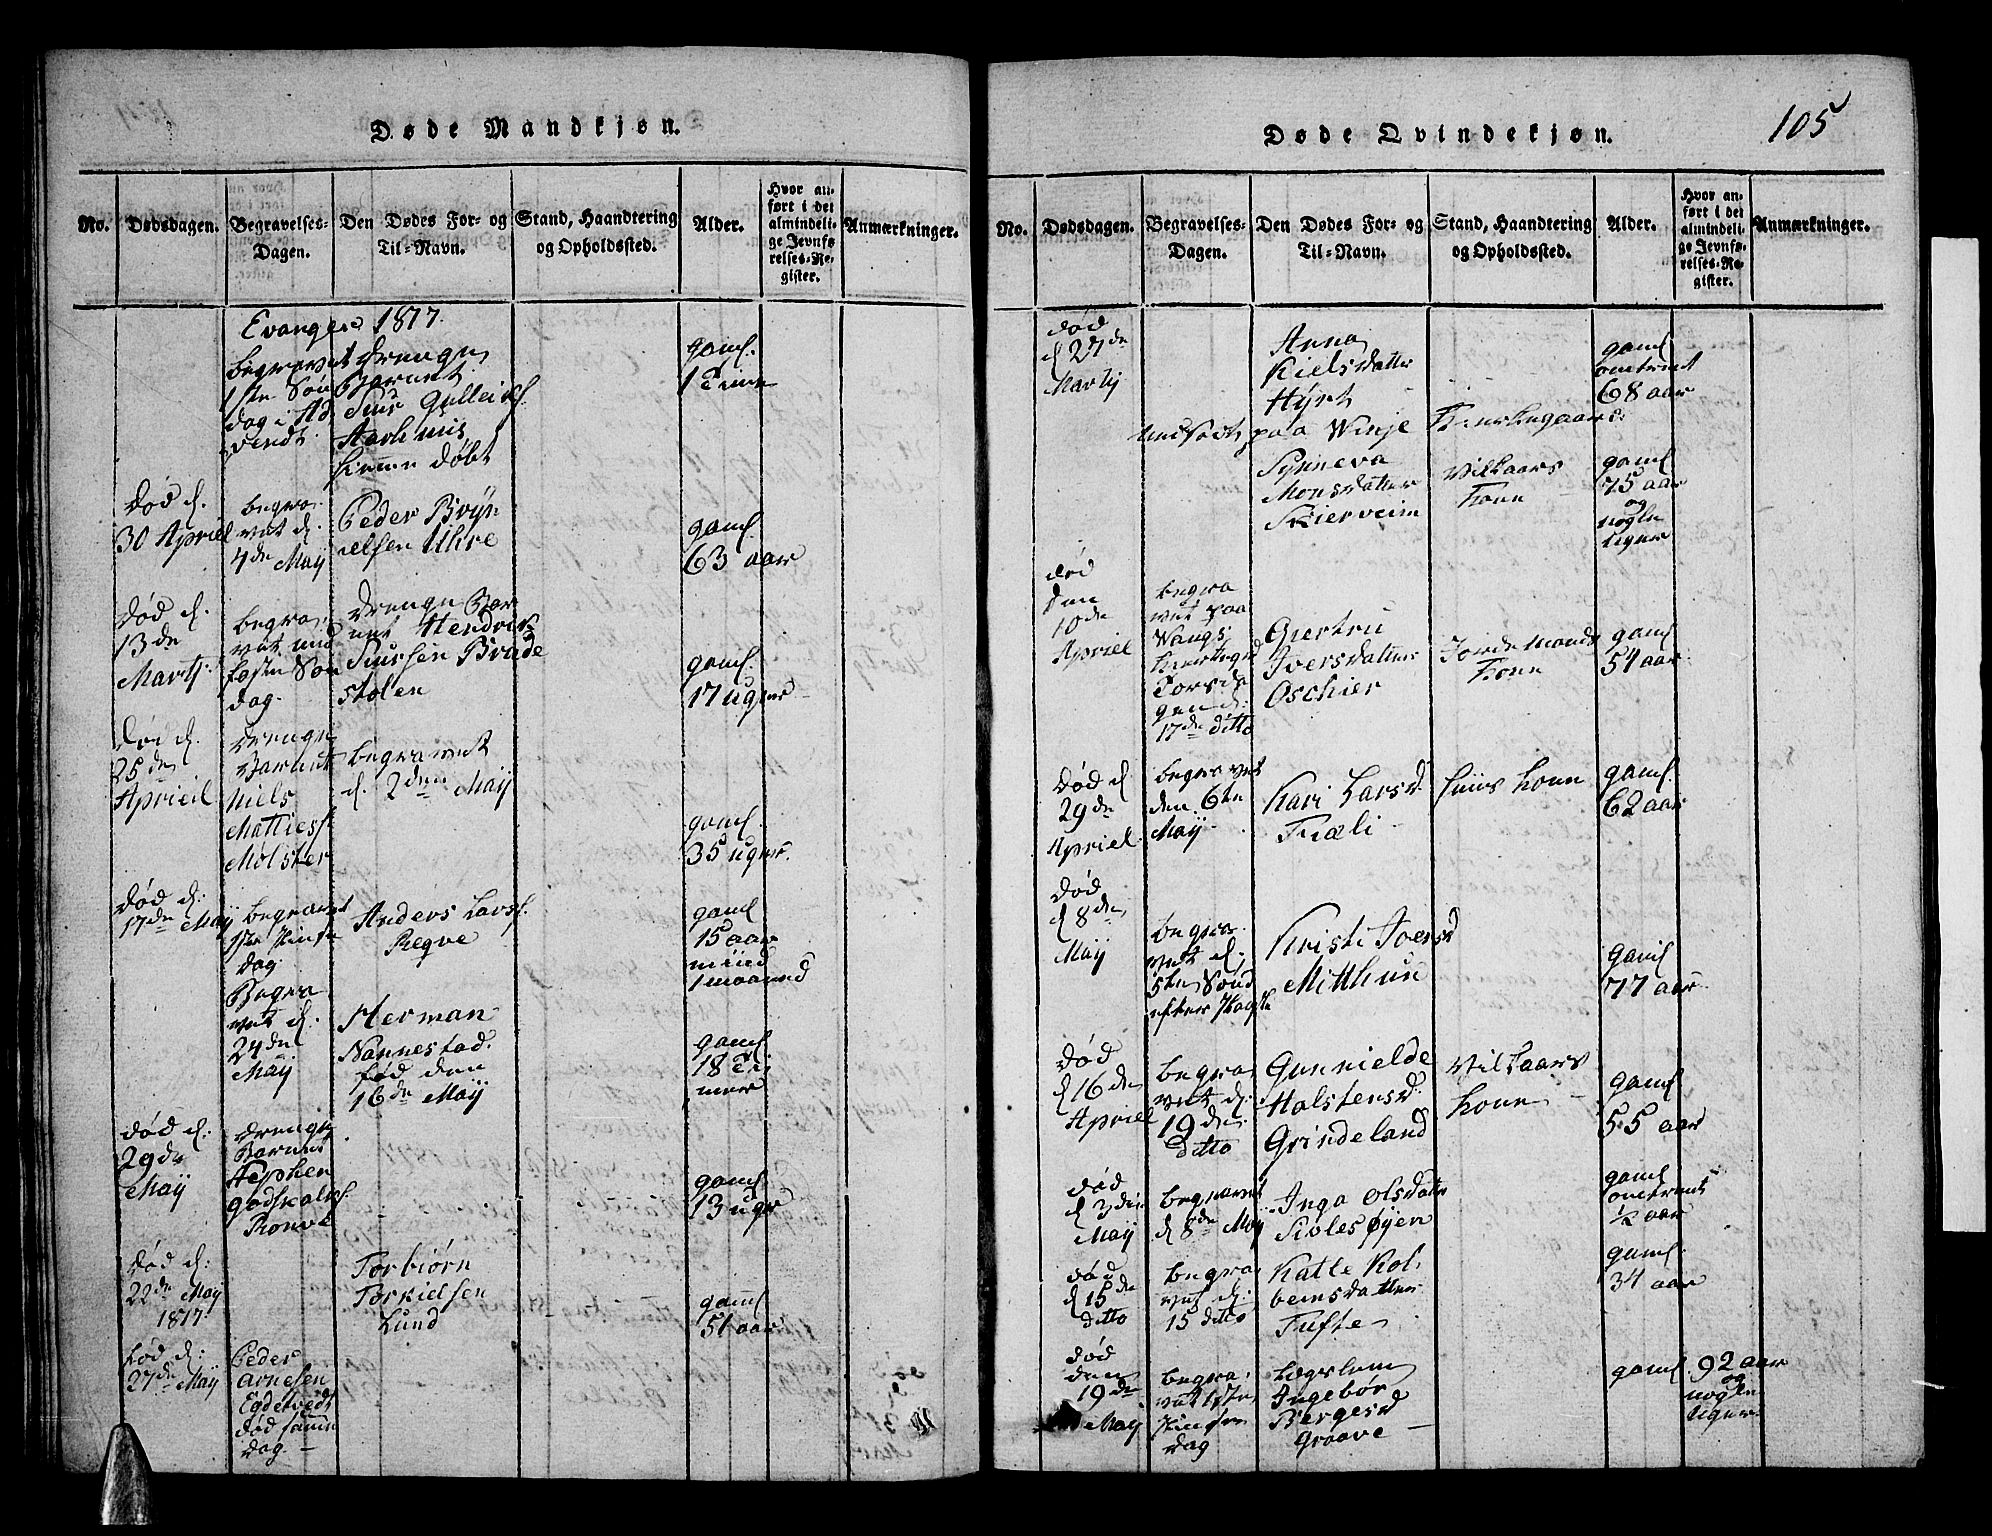 Døde Mandkjøn.
No.
Dødsdagen.
Begravelses-
Dagen.
Den Dødes For- og
Til-Navn.
Stand, Haandtering
og Opholdssted.
Alder.
Hvor an-
ført i det
almindeli-
ge Jevnfø-
relses-Re-
gister.
Anmærkninger.
Evanger 1817.
begravet
1ste Søn
dag i Ad
vendt.
Drenge
Barnet
Hiemme døbt
gaml.
1 Time
Død d.
30 Apriel
begra
vet d.
4de Maij
Peder Bryn
ielsen Uhre
gaml.
63 aar
Død d.
13de
Martij
begra
vet mid
faste Søn
dag.
Drenge Bar
net Hendrik
Siursen Brade
stolen
gaml.
17 uger
Død d.
25de
Aprieil
Drenge
Barnet
Niels
Mattiess.
Mølster
begravet
d. 2den Maij
gaml.
35 uger.
Død d:
17de Maij
begravet
1ste Pintse
dag
Anders Larss.
Reqve
gaml
15 aar
mind
1 maaned
Begra
vet d.
24de
Maij
Herman
Nannestad.
fød den
16de Maij
gaml
18 Ti
mer
Død d:
29de
Maij
Drenge
Barnet
Stephen
Godskalks.
Ronve
gaml
13 uger
Død d:
22de Maij
1817.
Torbiørn
Torkielsen
Lund
gaml
51 aar
Død d:
27de Maij
Peder
Arnesen
Egdetvedt
død samme
dag. —
Døde Qvindekjøn.
105
No.
Dødsdagen.
Begravelses-
Dagen.
Den Dødes For- og
Til-Navn.
Stand, Haandtering
og Opholdssted.
Alder.
Hvor an-
ført i det
almindeli-
ge Jevnfø-
relses-Re-
gister.
Anmærkninger.
død
d 27de
Martij
Anna
Nielsdatter
Hyrt
gaml
omtrent
68 aar
Indsadt paa Winje Kirkegaard:
Synneva
Monsdatter
Skierveim
Vilkaars
Kone
gaml
75 aar
og
nogle
Uger
død
den
10de
Apriel
begra
vet paa
Wangs
Kirkegrd
Torsda
gen d:
17de ditto
Giertru
Iversdatter
Oschier
Jordemands
Kone
gaml
54 aar
Død d
29de
Apriel
begravet
den 6te
Maij
Kari Larsd
Fræli
Huus Kone
gaml.
62 aar
Død
d 8de
Maij
begra
vet d:
5te Sønd
efter Paaske
Kristi Iversd
Mitthun
gaml
77 aar
Død
d 16de
Apriel
begra
vet d:
19de
ditto
Gunnielde
Halstensd.
Grindeland
Vilkaars
Kone
gaml
55 aar
død
d 3die
Maij
begravet
d 8de Maij
Inga Olsdatter
Siølesøyen
gaml
omtrent
1/2 aar
død
d 15de
ditto
begra
vet d:
15 ditto
Katte Kol
beensdatter
Tufte
gaml.
34 aar
død
den
19de
Maij
begra
vet 1ste
Pintse
dag
Lægslem
Ingebør
Bergesd
Graave
gaml 92 aar
og
nogle
Uger